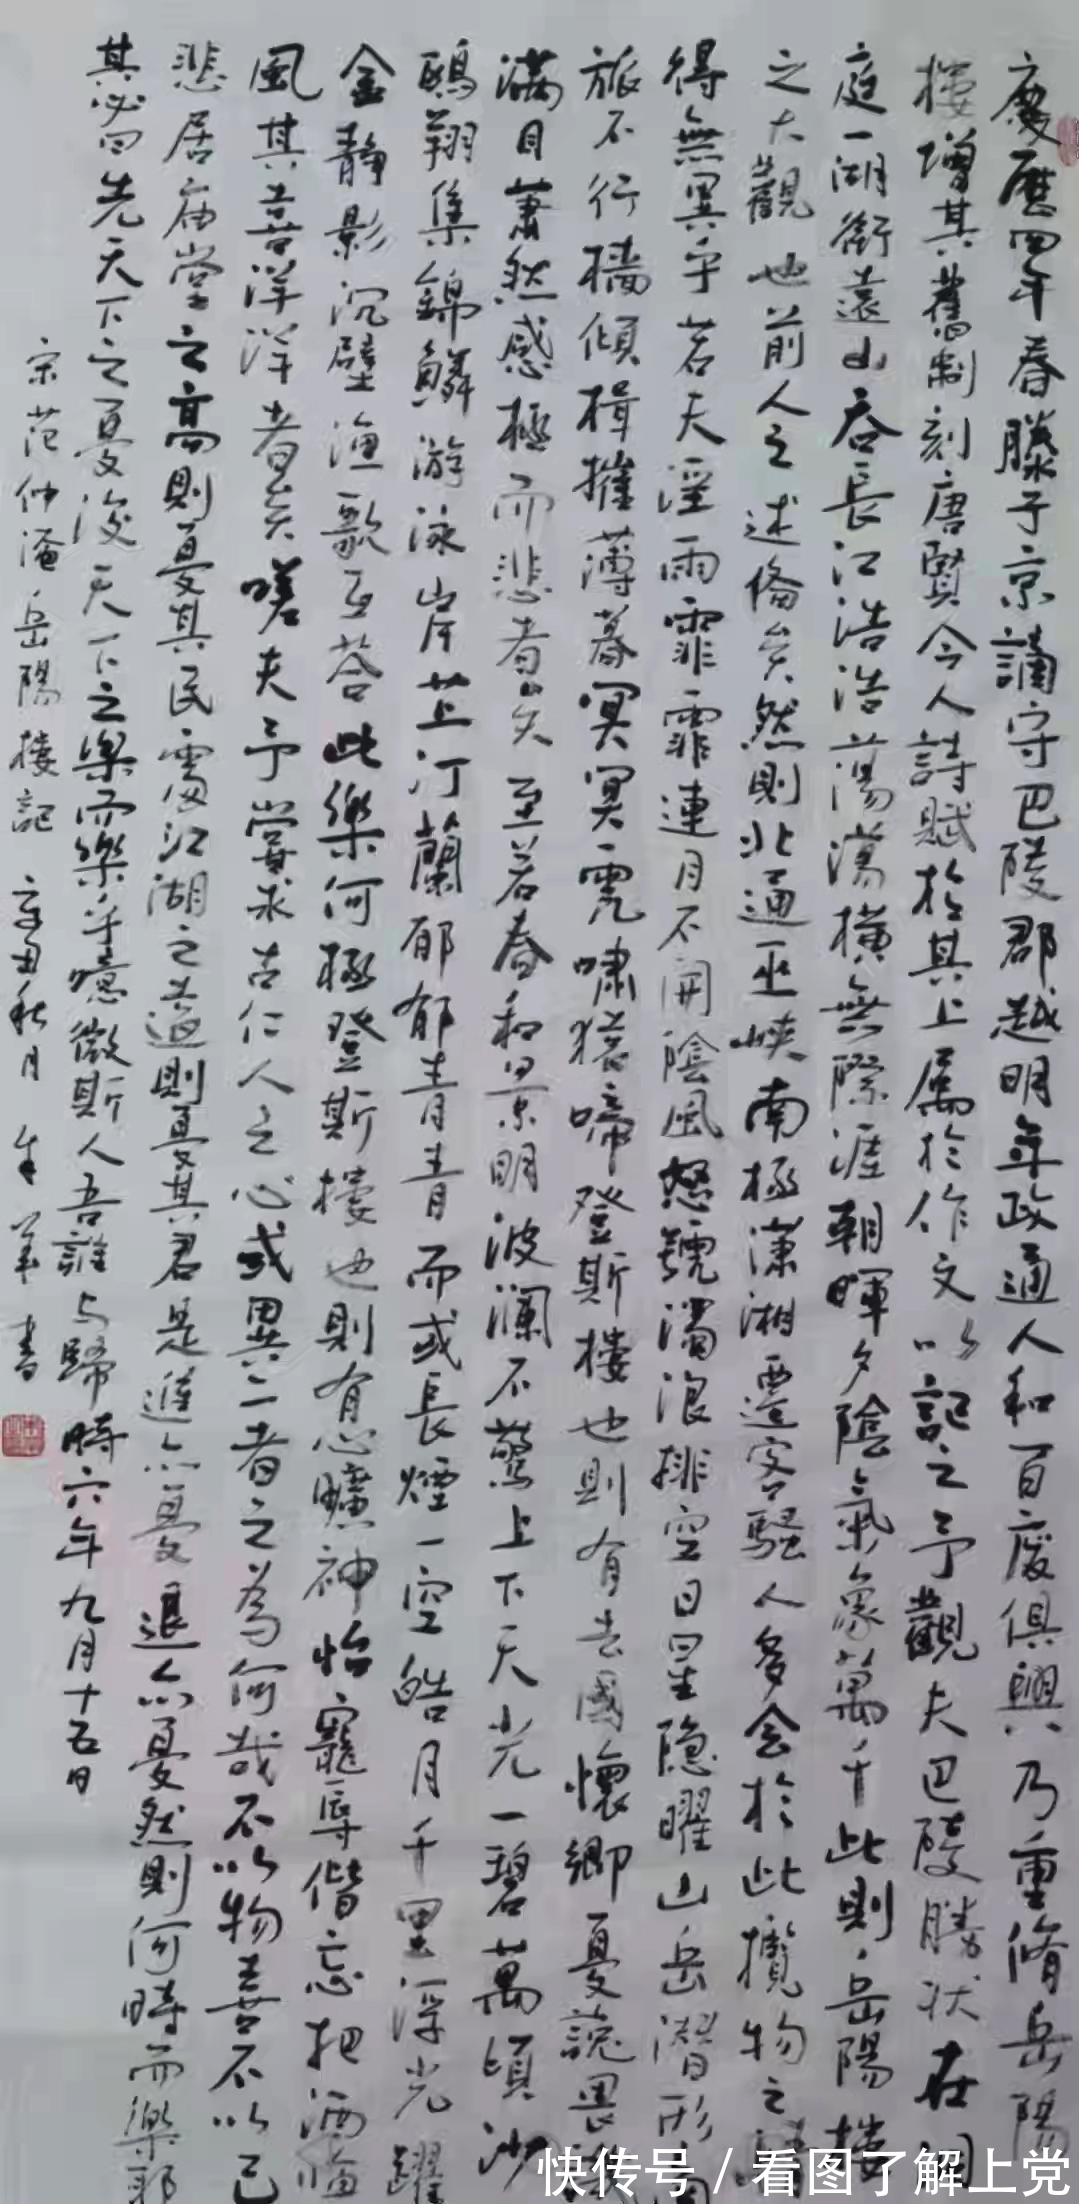 慶歷四年春滕子京謫守巴陵郡越明年政通人和百廢俱興乃重脩岳陽
樓增其舊制刻唐賢今人詩賦於其上屬於作文以記之予觀夫巴陵勝狀在洞
庭一湖銜遠山吞長江浩浩蕩蕩橫無際涯朝暉夕陰氣象萬千此則岳陽樓
之大觀也前人之述備矣然則北通巫峽南極瀟湘遷客騷人多会於此攬物之情
得無異乎若夫淫雨霏霏連月不開陰風怒號濁浪排空日星隐曜山岳潛形商
旅不行檣傾楫摧薄暮冥冥虎嘯猿啼登斯樓也則有去國懷鄉憂讒畏譏
滿目蕭然感極而悲者矣至若春和景明波澜不驚上下天光一碧萬頃沙
鷗翔集錦鱗游泳岸芷汀蘭郁郁青青而或長煙一空皓月千里浮光躍
金靜影沉璧漁歌互荅此樂何極登斯樓也則有心曠神怡寵辱偕忘把酒臨
風其喜洋洋者矣嗟夫予嘗求古仁人之心或異二者之為何哉不以物喜不以己
悲居庙堂之高則憂其民處江湖之遠則憂其君是進亦憂退亦憂然則何時而樂耶
其必曰先天下之憂後天下之樂而樂乎噫微斯人吾誰与歸時六年九月十五日
宋范仲淹岳陽樓記 辛丑秋月 書
快传号/看图了解上党